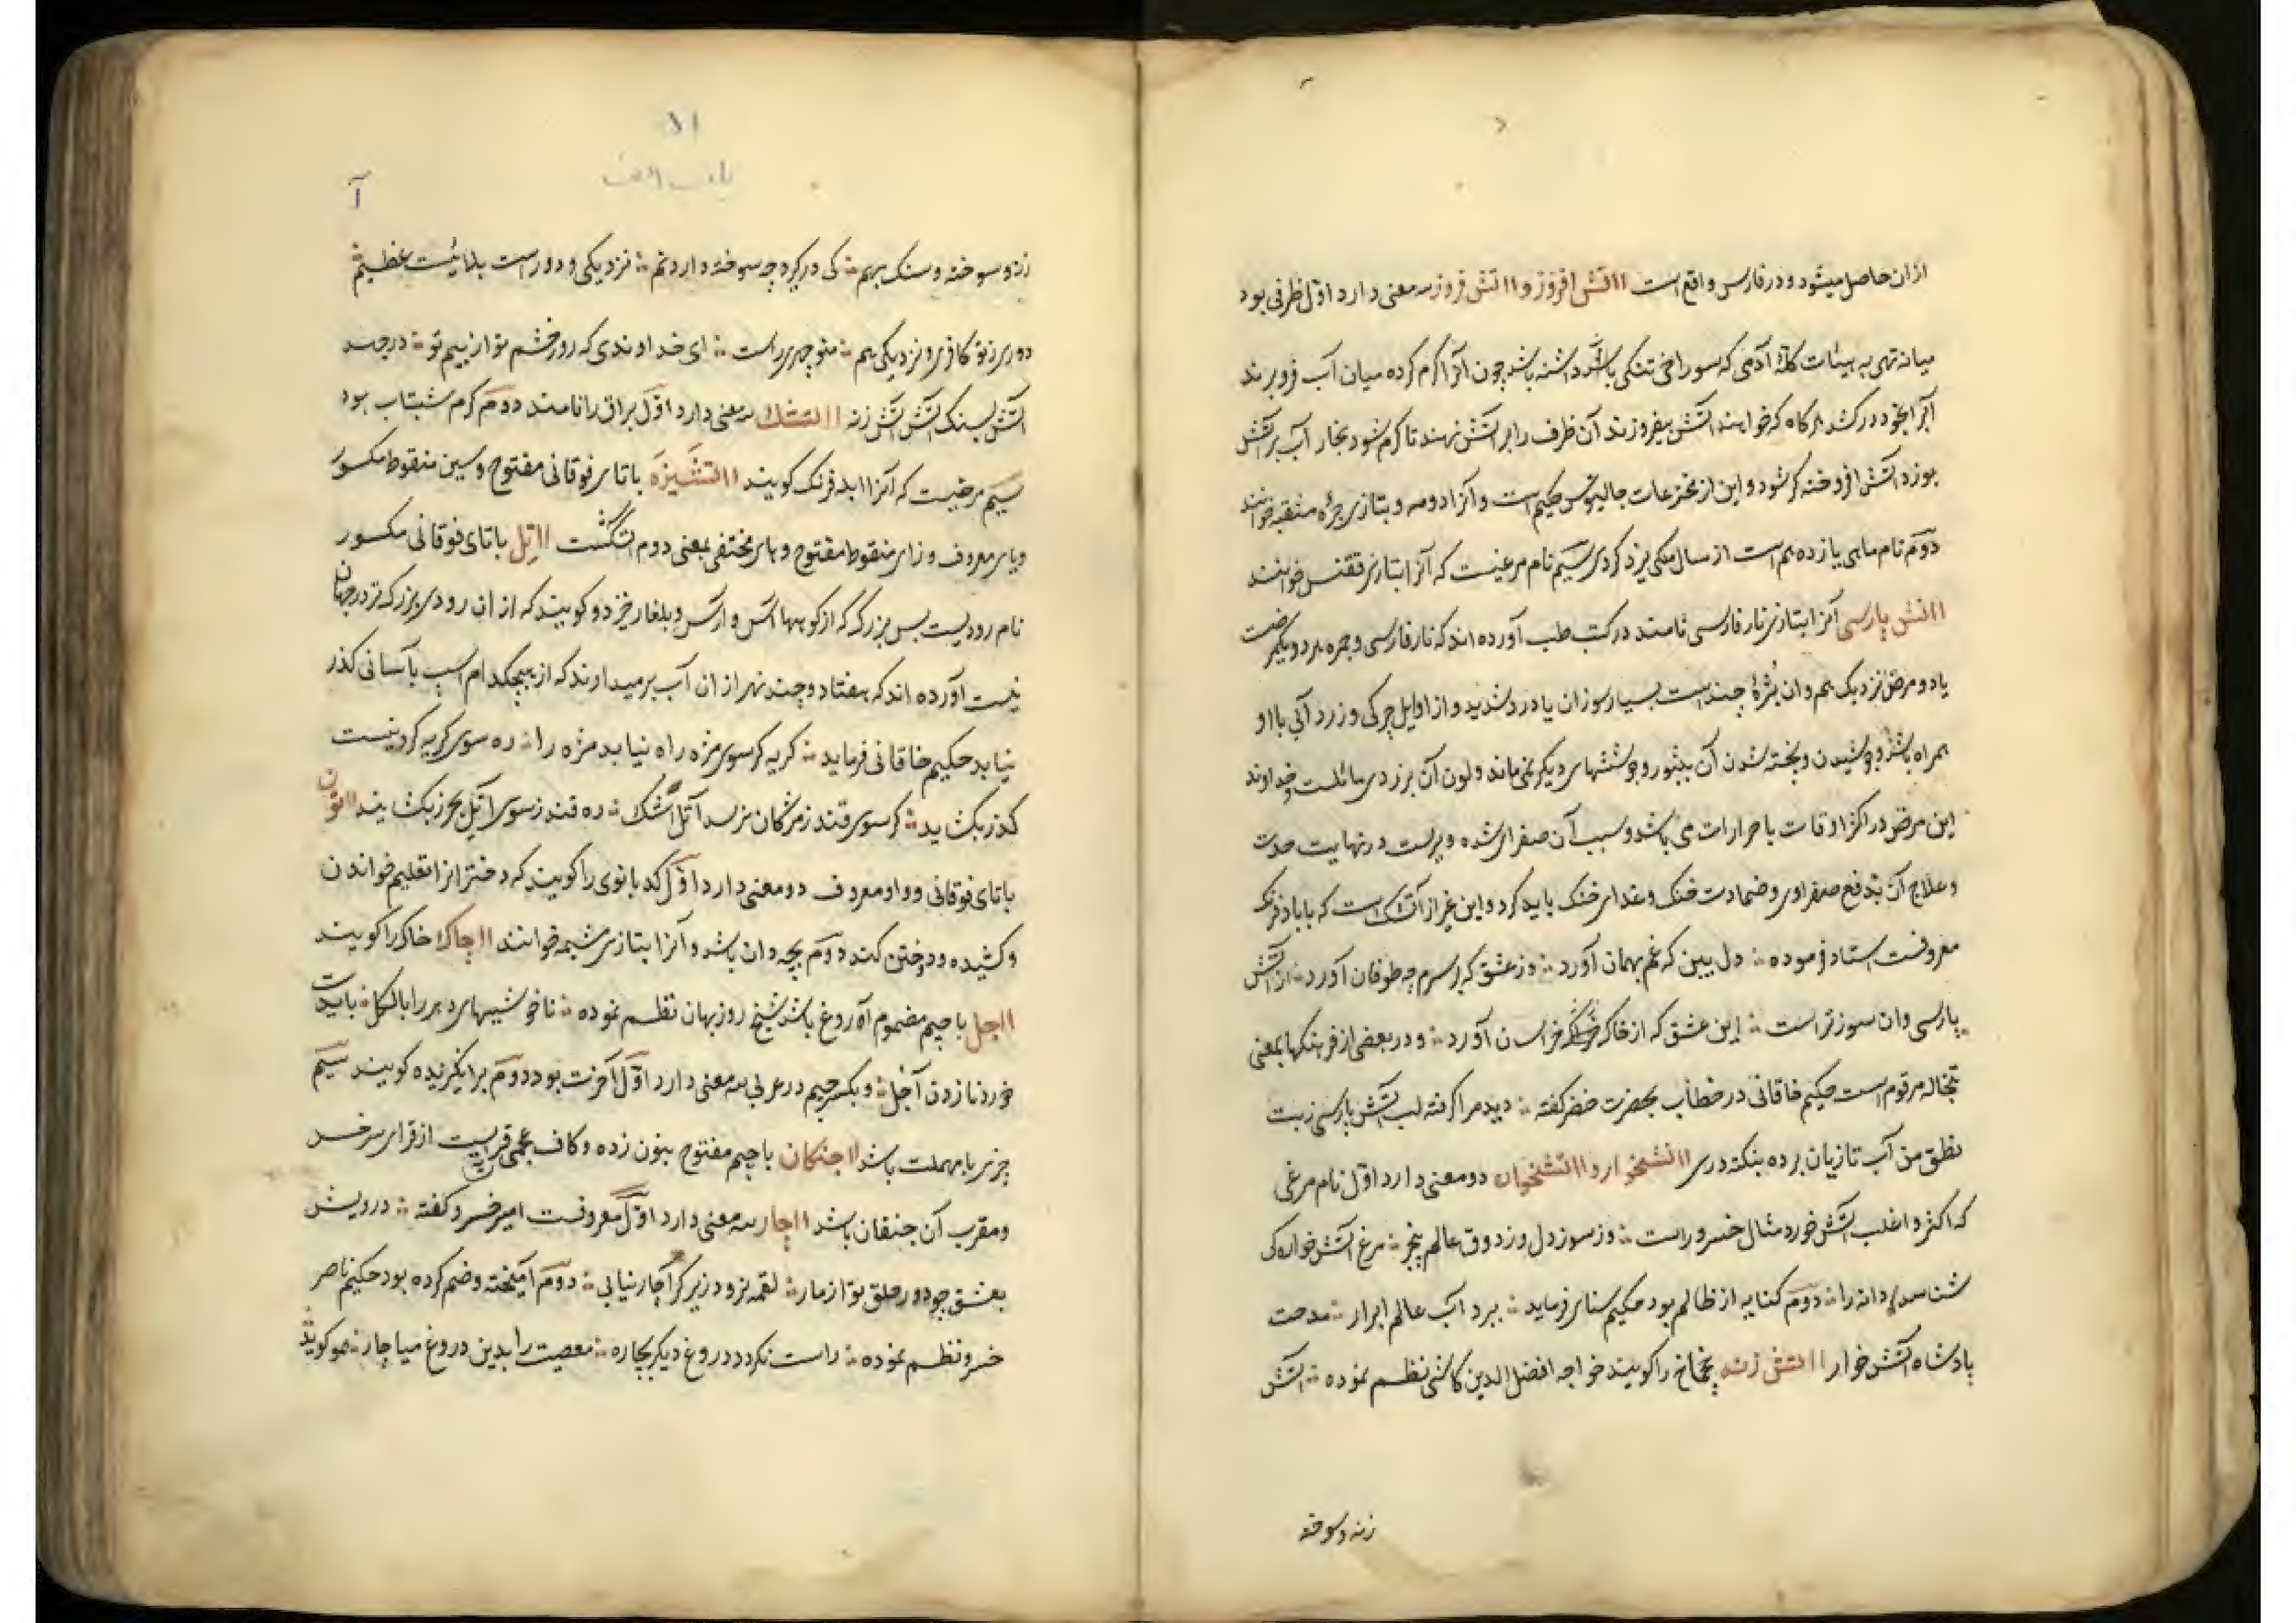 ازان حاصل میشود و در فارس واقع است ااتش افروز و ااتش فروز سه معنی دارد اول ظرفی بود
میانه تهی به هیئات کلهٔ آدمی که سوراخی تنکی داشته باشد چون آنرا کرم کرده میان آب فرو برند
آبرا بخود در کشد هر کاه که خواهند آتش بیفروزند آن ظرف را بر آتش نهند تا کرم شود بخار آب بر آتش
بوزد آتش افروخته کر شود و این از مخترعات جالینوس حکیم است و آنرا دومه و بتازی منقبه خوانند
دوم نام ماهی یازدهم است از سال ملکی یزدکردی سیم نام مرغیست که آنرا بتازی ققنس خوانند
ااتش پارسی آنرا بتازی نار فارسی نامند در کتب طب آورده اند که نار فارسی و جمره هر دو یکمرضست
یا دو مرض نزدیک بهم و ان بثرهٔ چند است بسیار سوزان با درد شدید و از اوایل چرکی و زرد آبی با او
همراه باشد و جوشیدن و پخته شدن آن ببثور و جوششهای دیکر نمی ماند و لون آن بزردی مائلست خداوند
این مرض در اکثر اوقات با حرارات می باشد و سبب آن صفرای شده و پرست در نهایت حدت
و علاج آن بدفع صفراوی و ضمادت خنک و غذای خنک باید کرد و این غیر از آتشک است که با باد فرنک
معروفست استاد فرموده دل بین که غم بهمان آورد وز عشق که بر سرم چه طوفان آورد از آتش
پارسی وان سوزتر است این عشق که از خاک خراسان آورد و در بعضی از فرهنکها بمعنی
تبخاله مرقوم است حکیم خاقانی در خطاب بحضرت خضر کفته دید مرا کرفته لب آتش پارسی ز تب
نطق من آب تازیان برده بنکته دری ااتشخوار و ااتشخوان دو معنی دارد اول نام مرغی
که اکثر و اغلب آتش خورد مثال خسرو راست وز سوز دل وز ذوق عالم بیخبر مرغ آتش خواره کی
شناسد دانه را دوم کنایه از ظالم بود حکیم سنای فرماید ببرد آب عالم ابرار مدحت
پادشاه آتش خوار ااتش زنه چخماخ را کویند خواجه افضل الدین کاشی نظم نموده آتش
زنه و سوخته
الا
باب الالف
آ
زنه و سوخته و سنک بهم کی در کیرد چه سوخته دارد نم نزدیکی و دور است بلائیست عظیم
دوری ز تو کافری و نزدیکی بیم منوچهری راست ای خداوندی که روز خشم تو از بیم تو در جهد
آتش بسنک آتش زنه ااتشک سه معنی دارد اول براق را نامند دوم کرم شبتاب بود
سیم مرضیست که آنرا ابله فرنک کویند ااتشیزه با تای فوقانی مفتوح و سین منقوط مکسور
و یای معروف و زای منقوط مفتوح و های مختفی بمعنی دوم آتشکست ااتل با تای فوقانی مکسور
نام رودیست بس بزرک که از کوهها آس و ارس و بلغار خیزد و کویند که از ان رودی بزرکتر در جهان
نیست آورده اند که هفتاد و چند نهر از ان آب برمیدارند که از هیچکدام اسپ بآسانی کذر
نیابد حکیم خاقانی فرماید کریه کر سوی مژه راه نیابد مژه را ره سوی کریه کر نیست
کذر بکشاید کر سوی قند ز مژکان نرسد آتل اشک ره قندز سوی آتل بحرز بکشایند ااتون
با تای فوقانی و واو معروف دو معنی دارد اول کدبانوی را کویند که دختران را تعلیم خواندن
و کشیده و دوختن کند دوم بچه دان باشد و آنرا بتازی مشیمه خوانند ااجاک خاک را کویند
ااجل با جیم مضموم آروغ باشد شیخ روزبهان نظم نموده ناخوشیهای دهر را بالکل بایدت
خورد نا زدن آجل و بکسر جیم در عربی سه معنی دارد اول آخرت بود دوم برانکیزنده کویند سیم
چیزی با مهملت باشد ااجنکان با جیم مفتوح بنون زده و کاف عجمی قریست از قرای سرخس
و معرب آن جنقان باشد ااچار سه معنی دارد اول معروفست امیر خسرو کفته درویش
بعشق جو دور حلق تو از مار لقمه نرود زیر کر آچار نیابی دوم آمیخته و ضم کرده بود حکیم ناصر
خسرو نظم نموده راست نکردد دروغ دیکر بچاره معصیت را بدین دروغ میاچار هموکوید